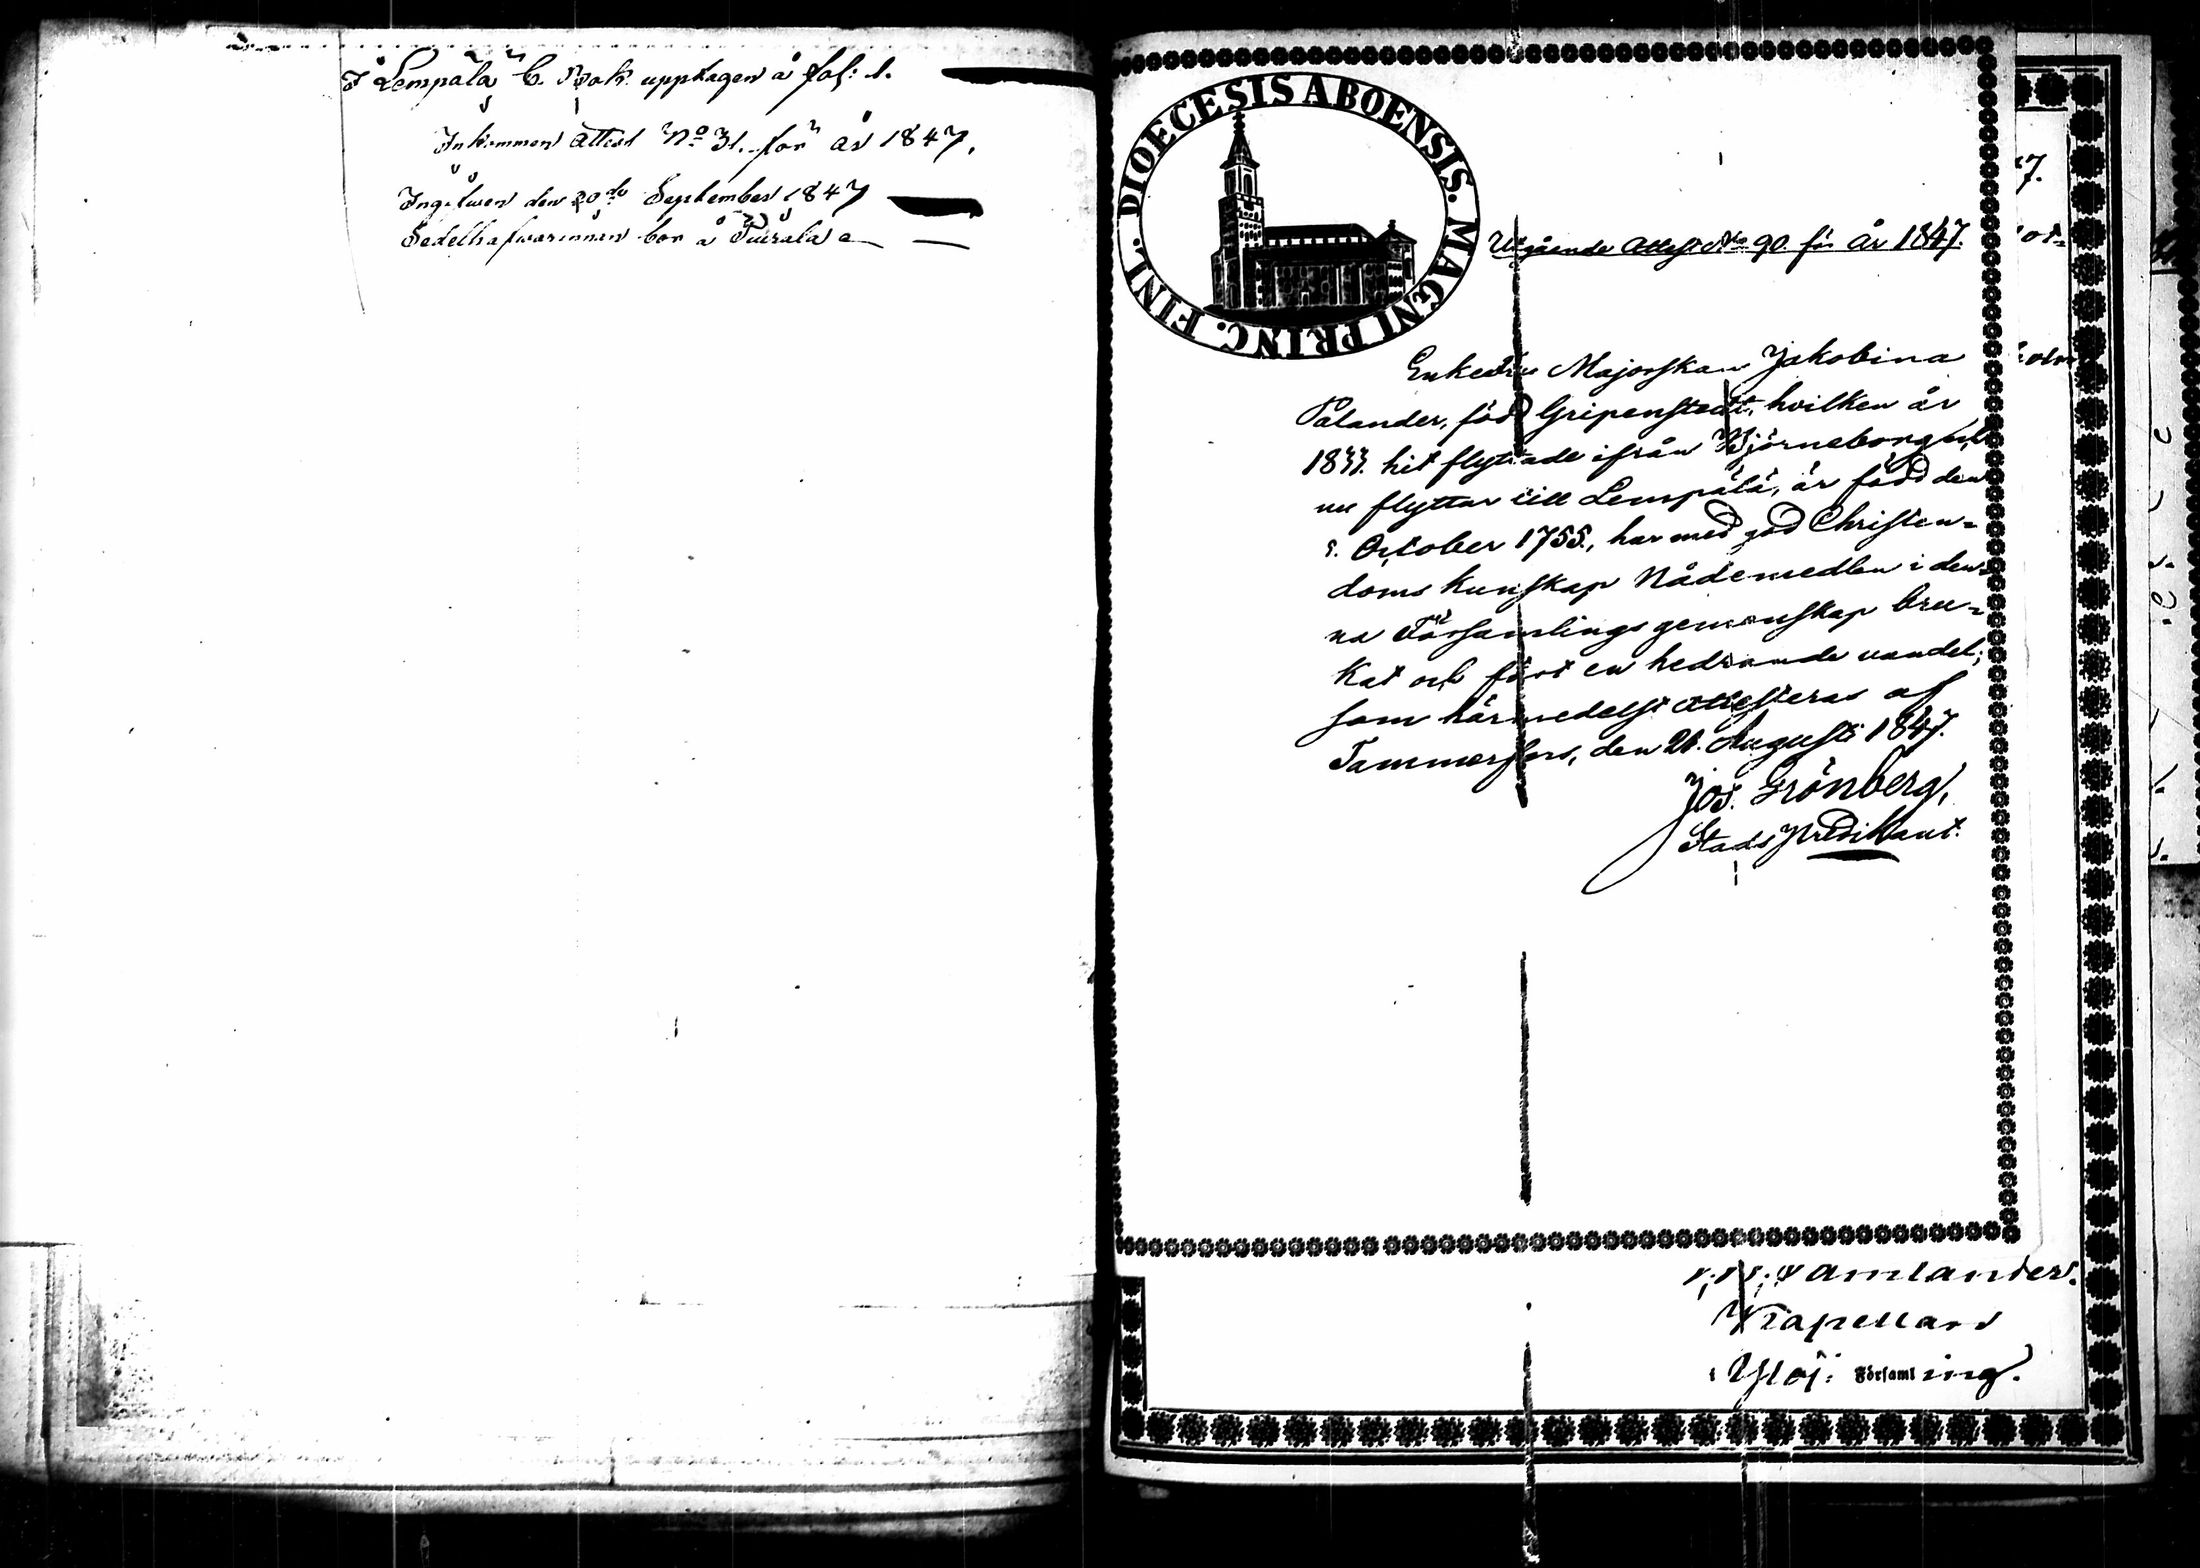 I Lempälä C. Bok upptagen å fol: 1.
Inkommen Attest No 31. för år 1847.
Ingifwen den 20de September 1847
Sedelhafwarinnan bor å Tuirala
DIOECESIS ABOENSIS. MAGNI PRINC. FINL.
Utgående Attest No 90. för År 1847.
Enkefru Majorskan Jakobina
Palander, född Gripenstedt, hvilken år
1833. hit flyttade ifrån Björneborg och
nu flyttar till Lempälä, är född den
October 1755., har med god Christen=
doms kunskap Nådemedlen i den=
na Församlings gemenskap bru=
kat och fört en hedrande vandel;
som härmedelst attesteras af
Tammerfors, den 21. Augusti 1847.
Jos. Grönberg,
Stads Predikant.
7.
Tamlander.
Kapellans
Ylöj: Församling.